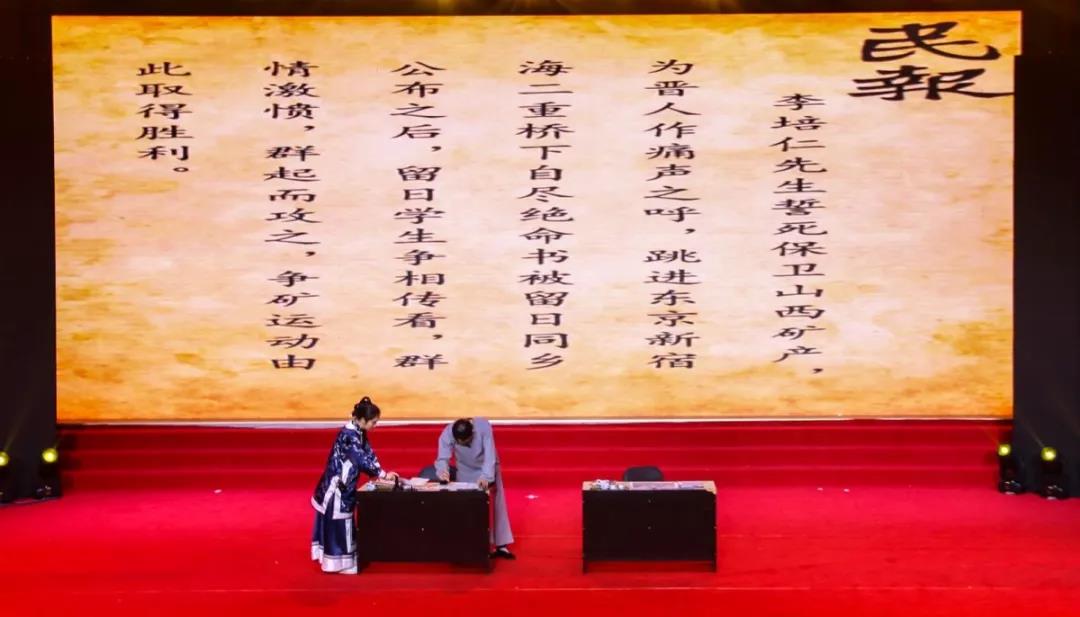 民報
李培仁先生誓死保卫山西矿产，
为晋人作痛声之呼，跳进东京新宿
海二重桥下自尽绝命书被留日同乡
公布之后，留日学生争相传看，群
情激愤，群起而攻之，争矿运动由
此取得胜利。